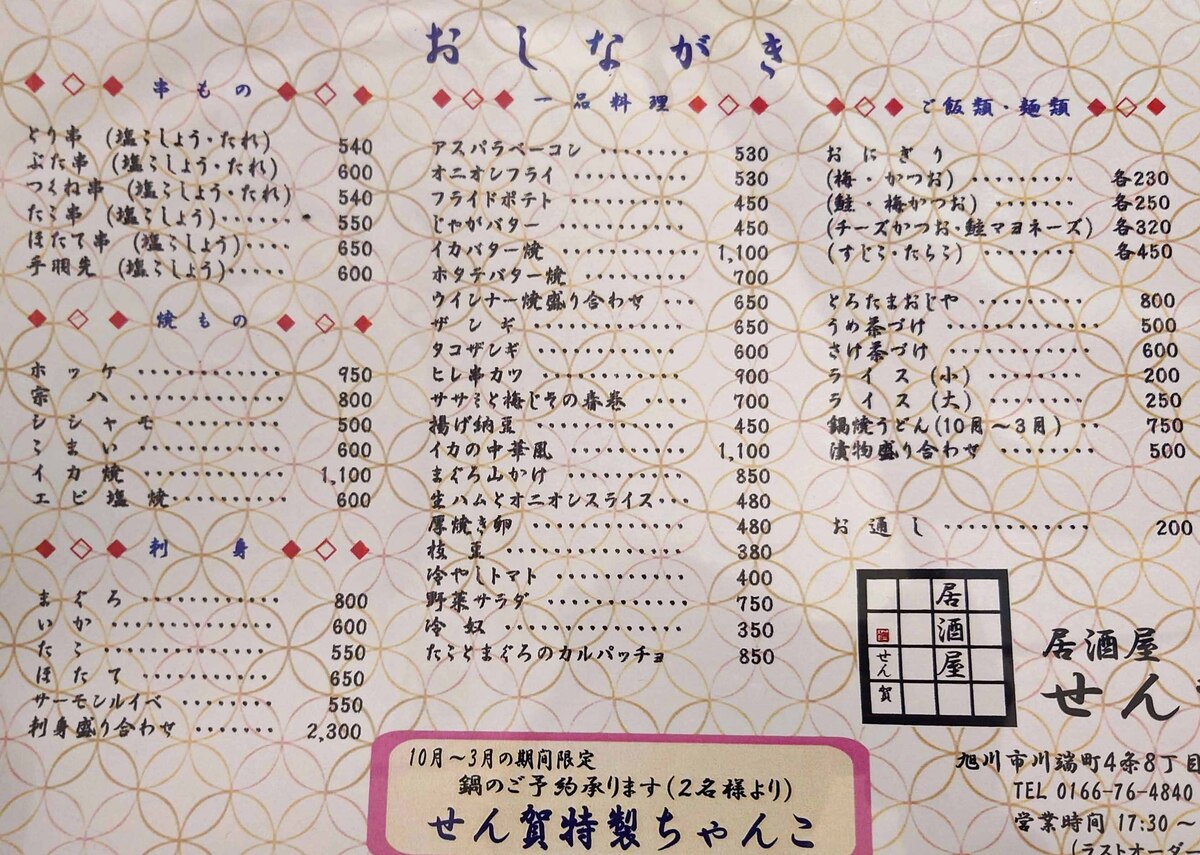 おしながき
串もの
とり串 (塩こしょう・たれ) 540
ぶた串 (塩こしょう・たれ) 600
つくね串 (塩こしょう・たれ) 540
たこ串 (塩こしょう)‥‥‥ 550
ほたて串 (塩こしょう)‥‥ 650
手羽先 (塩こしょう)‥‥‥ 600
焼もの
ホッケ ‥‥‥‥‥‥‥ 950
宗ハ ‥‥‥‥‥‥‥ 800
シシャモ ‥‥‥‥‥‥ 500
こまい ‥‥‥‥‥‥‥ 600
イカ焼 ‥‥‥‥‥‥‥ 1,100
エビ塩焼 ‥‥‥‥‥‥ 600
刺身
まぐろ ‥‥‥‥‥‥‥ 800
いか ‥‥‥‥‥‥‥ 600
たこ ‥‥‥‥‥‥‥ 550
ほたて ‥‥‥‥‥‥‥ 650
サーモンルイベ ‥‥‥‥‥ 550
刺身盛り合わせ ‥‥‥‥‥ 2,300
一品料理
アスパラベーコン ‥‥‥‥ 530
オニオンフライ ‥‥‥‥‥ 530
フライドポテト ‥‥‥‥‥ 450
じゃがバター ‥‥‥‥‥‥ 450
イカバター焼 ‥‥‥‥‥‥ 1,100
ホタテバター焼 ‥‥‥‥‥ 700
ウインナー焼盛り合わせ ‥‥ 650
ザンギ ‥‥‥‥‥‥‥ 650
タコザンギ ‥‥‥‥‥‥ 600
ヒレ串カツ ‥‥‥‥‥‥ 900
ササミと梅じその春巻 ‥‥ 700
揚げ納豆 ‥‥‥‥‥‥‥ 450
イカの中華風 ‥‥‥‥‥‥ 1,100
まぐろ山かけ ‥‥‥‥‥‥ 850
生ハムとオニオンスライス‥‥ 480
厚焼き卵 ‥‥‥‥‥‥‥ 480
枝豆 ‥‥‥‥‥‥‥‥ 380
冷やしトマト ‥‥‥‥‥‥ 400
野菜サラダ ‥‥‥‥‥‥ 750
冷奴 ‥‥‥‥‥‥‥‥ 350
たことまぐろのカルパッチョ 850
ご飯類・麺類
おにぎり
(梅・かつお) ‥‥‥‥‥ 各230
(鮭・梅かつお) ‥‥‥‥ 各250
(チーズかつお・鮭マヨネーズ) 各320
(すじこ・たらこ) ‥‥‥‥ 各450
とろたまおじや ‥‥‥‥‥ 800
うめ茶づけ ‥‥‥‥‥‥‥ 500
さけ茶づけ ‥‥‥‥‥‥‥ 600
ライス(小) ‥‥‥‥‥ 200
ライス(大) ‥‥‥‥‥ 250
鍋焼うどん(10月〜3月) ‥ 750
漬物盛り合わせ ‥‥‥‥‥ 500
お通し ‥‥‥‥‥‥‥ 200
居酒屋
せん賀
居酒屋
せん
旭川市川端町4条8丁目
TEL 0166-76-4840
営業時間 17:30〜
(ラストオーダー
10月〜3月の期間限定
鍋のご予約承ります(2名様より)
せん賀特製ちゃんこ